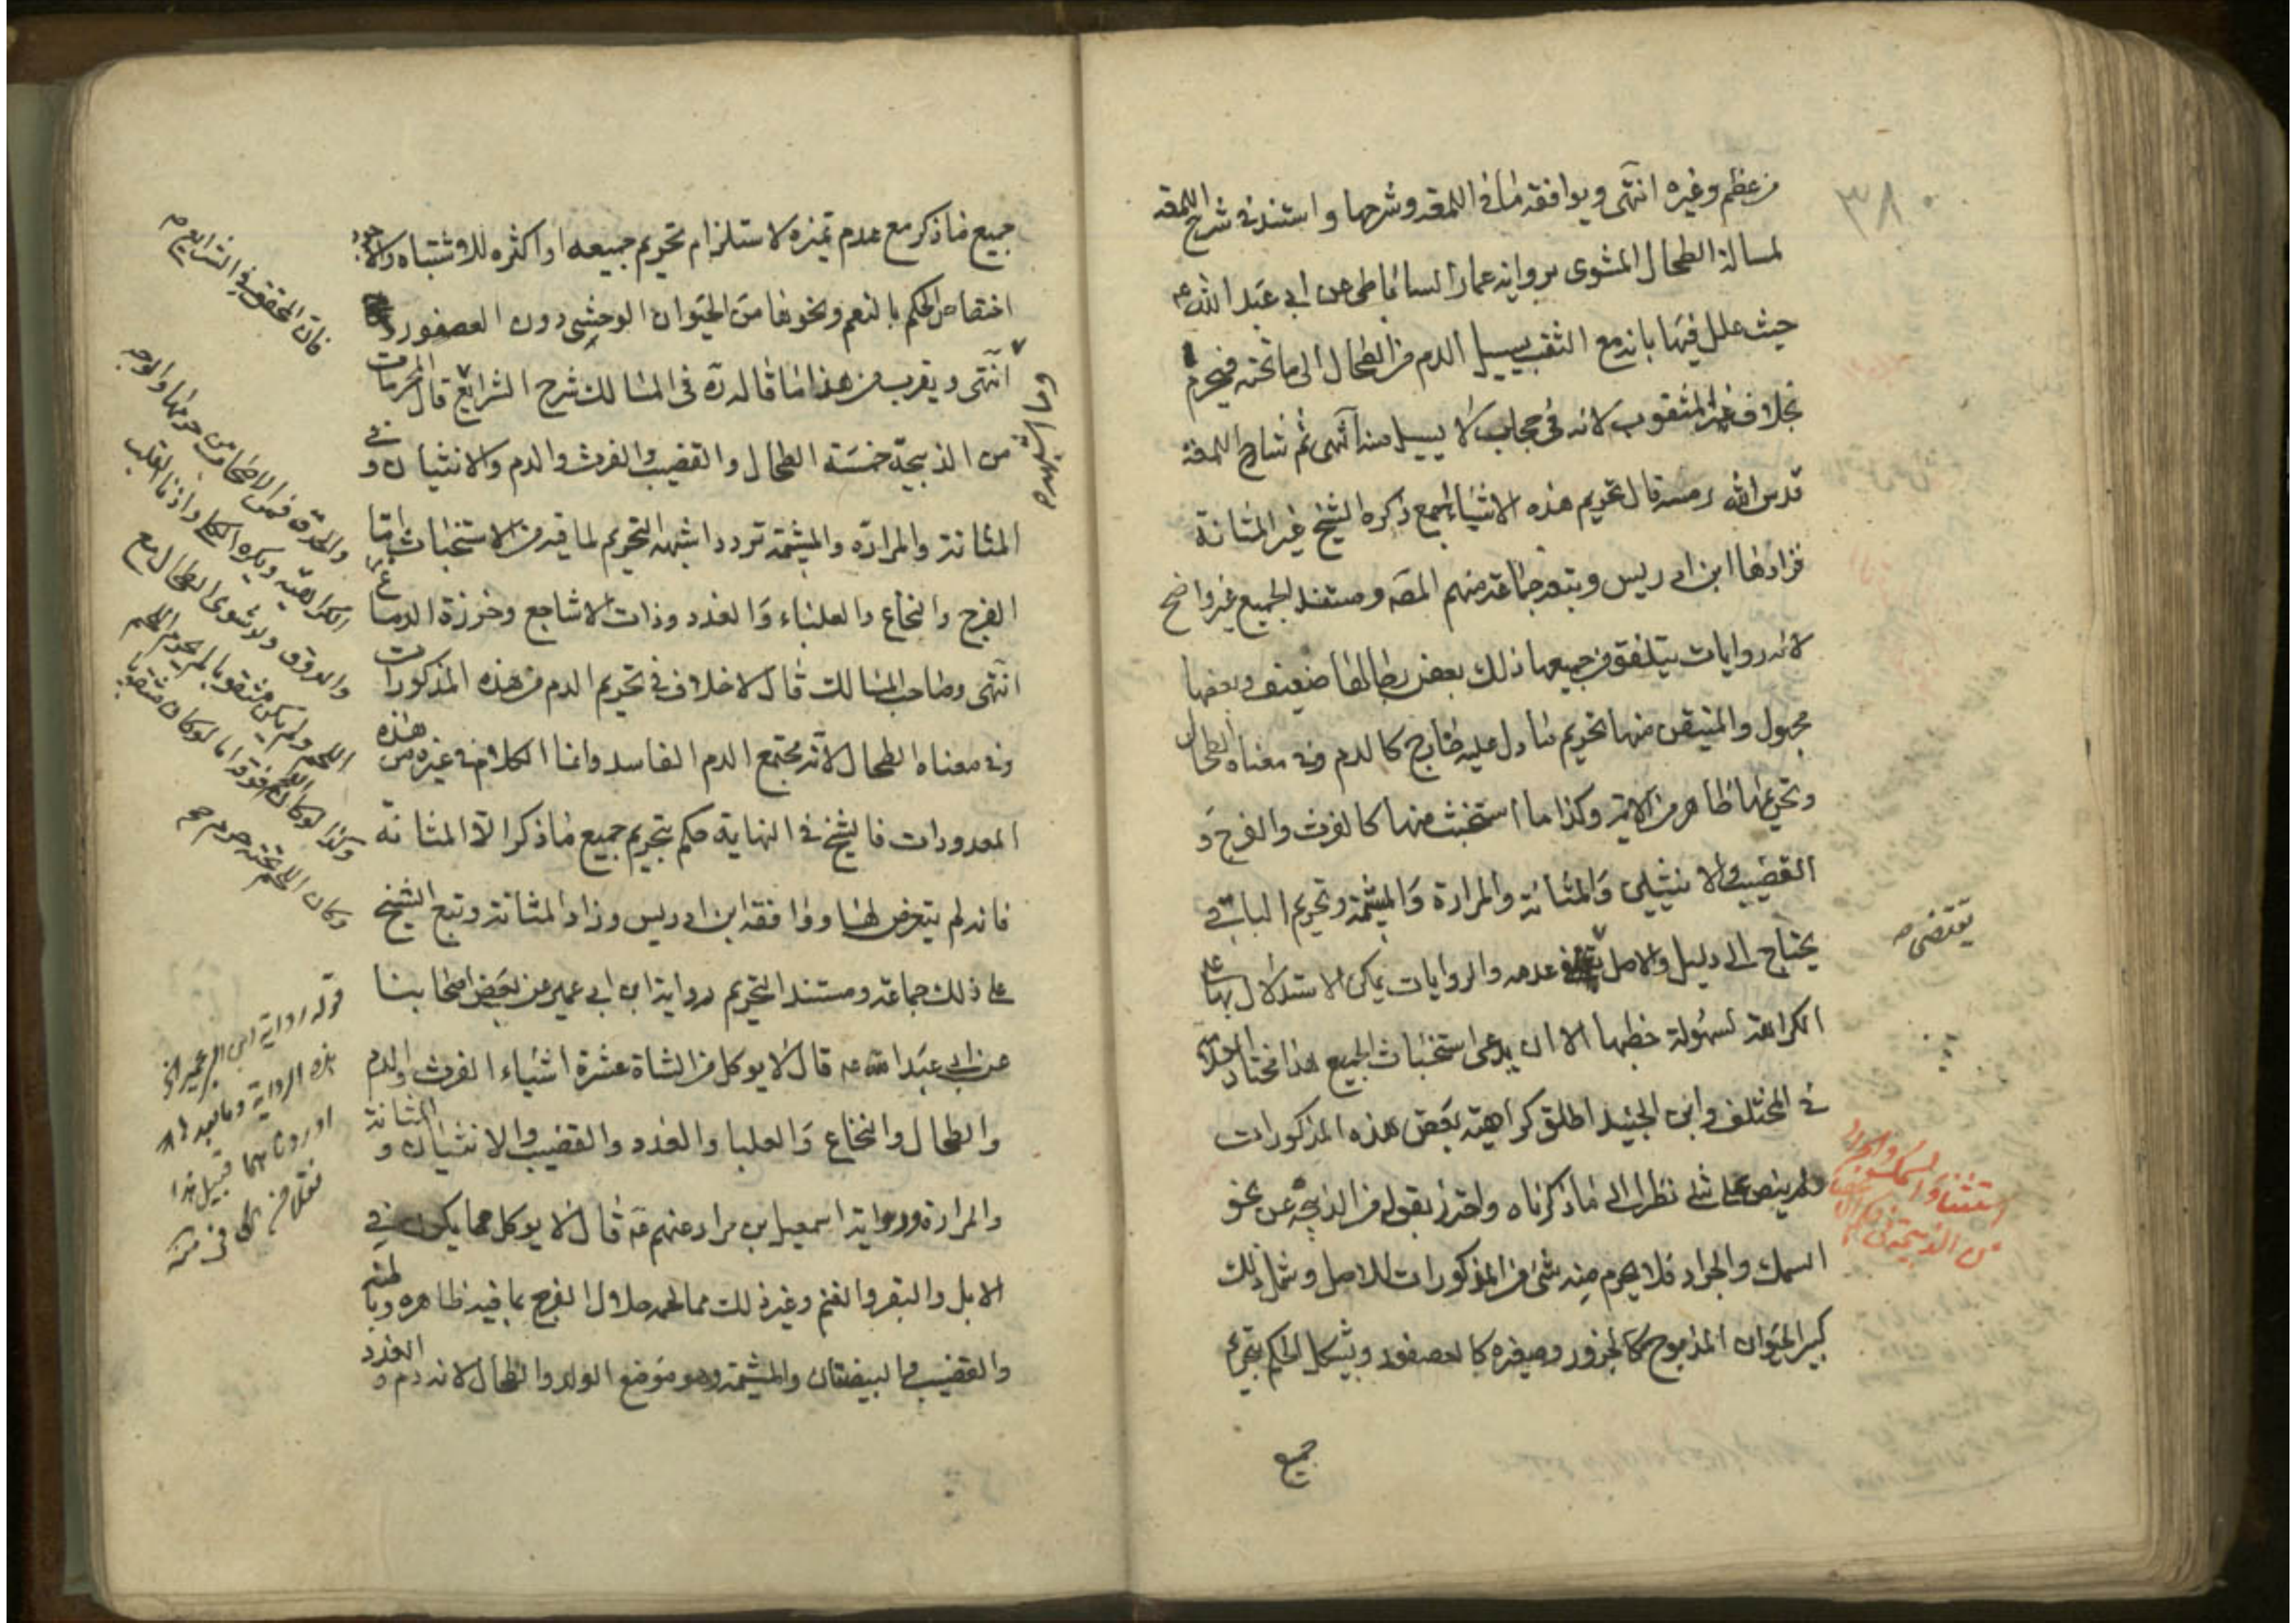 ٣٨٠
من عظم وغيره انتهى ويوافقه ما في اللمعة وشرحها واستند في شرح اللمعة
لمسالة الطحال المشوى برواية عمار الساباطى عن ابى عبد الله ع
حيث علل فيها بانه مع الثقب يسيل الدم من الطحال الى ما تحته فيحرم
بخلاف غير المثقوب لانه في حجاب لا يسيل منه انتهى ثم شارح اللمعة
قدس الله رمسه قال تحريم هذه الاشياء اجمع ذكره الشيخ غير المثانة
فزادها ابن ادريس وتبعه جماعة منهم المصه ومستند الجميع غير واضح
لانه روايات يتلفق من جميعها ذلك بعض رجالها ضعيف وبعضها
مجهول والمتيقن منها تحريم ما دل عليه خارج كالدم وفي معناه الطحال
وتحريمها ظاهر من الاية وكذا ما استخبث منها كالفرث والفرج و
القضيب والانثيين والمثانة والمرارة والمشيمة وتحريم الباقى
يحتاج الى دليل والاصل عدمه والروايات يمكن الاستدلال بها على
يقتضى صه
الكراهة لسهولة خطبها الا ان يدعى استخباث الجميع هذا مختار العلامة
في المختلف وابن الجنيد اطلق كراهية بعض هذه المذكورات
ولم ينص على شئ نظرا الى ما ذكرناه واحترز بقوله من الذبيحة عن نحو
استثناء السمك والجراد
من الذبيحة
السمك والجراد فلا يحرم منه شئ من المذكورات للاصل وشمل ذلك
كبير الحيوان المذبوح كالجزور وصغيره كالعصفور ويشكل الحكم بتحريم
جميع
جميع ما ذكر مع عدم تميزه لاستلزام تحريم جميعه او اكثره للاشتباه والاجود
اختصاص الحكم بالنعم ونحوها من الحيوان الوحشى دون العصفور
وما اشبهه صه
انتهى ويقرب من هذا ما قاله ره في المسالك شرح الشرايع قال المحرمات
من الذبيحة خمسة الطحال والقضيب والفرث والدم والانثيان وفي
المثانة والمرارة والمشيمة تردد اشبهه التحريم لما فيه من الاستخباث اما
الفرج والنخاع والعلباء والغدد وذات الاشاجع وخرزة الدماغ
انتهى وصاحب المسالك قال لا خلاف في تحريم الدم من هذه المذكورات
وفي معناه الطحال لانه مجتمع الدم الفاسد وانما الكلام في غيره من هذه
المعدودات فالشيخ في النهاية حكم بتحريم جميع ما ذكر الا المثانة
فانه لم يتعرض لها ووافقه ابن ادريس وزاد المثانة وتبع الشيخ
على ذلك جماعة ومستند التحريم رواية ابن ابى عمير عن بعض اصحابنا
عن ابى عبد الله ع قال لا يوكل من الشاة عشرة اشياء الفرث والدم
والطحال والنخاع والعلبا والغدد والقضيب والانثيان والمثانة
والمرارة ورواية اسمعيل بن مرار عنهم ع قال لا يوكل مما يكون في
الابل والبقر والغنم وغير ذلك مما لحمه حلال الفرج بما فيه ظاهره وباطنه
والقضيب والبيضتان والمشيمة وهو موضع الولد والطحال لانه دم والغدد
قال المحقق في الشرايع صه
والحدق فمن الاصحاب من حرمها والوجه
الكراهية ويكره الكلى واذنا القلب
والعروق ولو شوى الطحال مع
اللحم ولم يكن مثقوبا لم يحرم اللحم
وكذا لو كان اللحم فوقه اما لو كان مثقوبا
وكان اللحم تحته حرم صح
قوله رواية ابن ابى عمير الخ
هذه الرواية وما بعدها
اوردناهما قبيل هذا
نقلا من الكافى منه